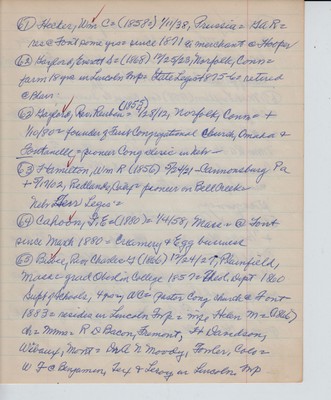 (61) Hecker, Wm C= (1858) = 1/11/38, Prussia = Gil R=
res @ Font some yrs = since 1871 a merchant @ Hooper
(63) Gaylord, = (1868) 12/25/23, Norfolk, Conn =
farm 18 yrs in Lincoln Mp = State Legis+ 1875-6 = retired
@ Blair =
(62) Gaylord, Rev Reuben = (1855) = 4/28/12, Norfolk, Conn = +
1/10/80 = founder of First Congregational Church, Omaha &
Fontanelle = pioneer Cong cleric in
(63) Hamilton, Wm R (1856) 5/24/21 = Cannonsburg Pa
+ 5/17/02, Redlands, Calif = pioneer on Bell Creek =
Nebr Terr Legis =
(64) Cahoon, G.E = (1880) = 1/4/58, Mass = @ Font
since Mch 1880 = Creamery & Egg business
(65) Bates, Rev Charles G (1866) 12/24/27, Plainfield,
Mass = grad Oberlin College 1857 = Theol. Dept 1860
Supt of Schools, 4 yrs, WC = pastor Cong church @ Font
1883 = resides in Lincoln Mp = m, Helen M = (1866)
ch = Mmes = R D Bacon, Fremont, H Davidson,
Wibaux, Mont = Dr A N Moody, Fowler, Colo =
W F C Benjamin, Guy & Leroy in Lincoln Mp